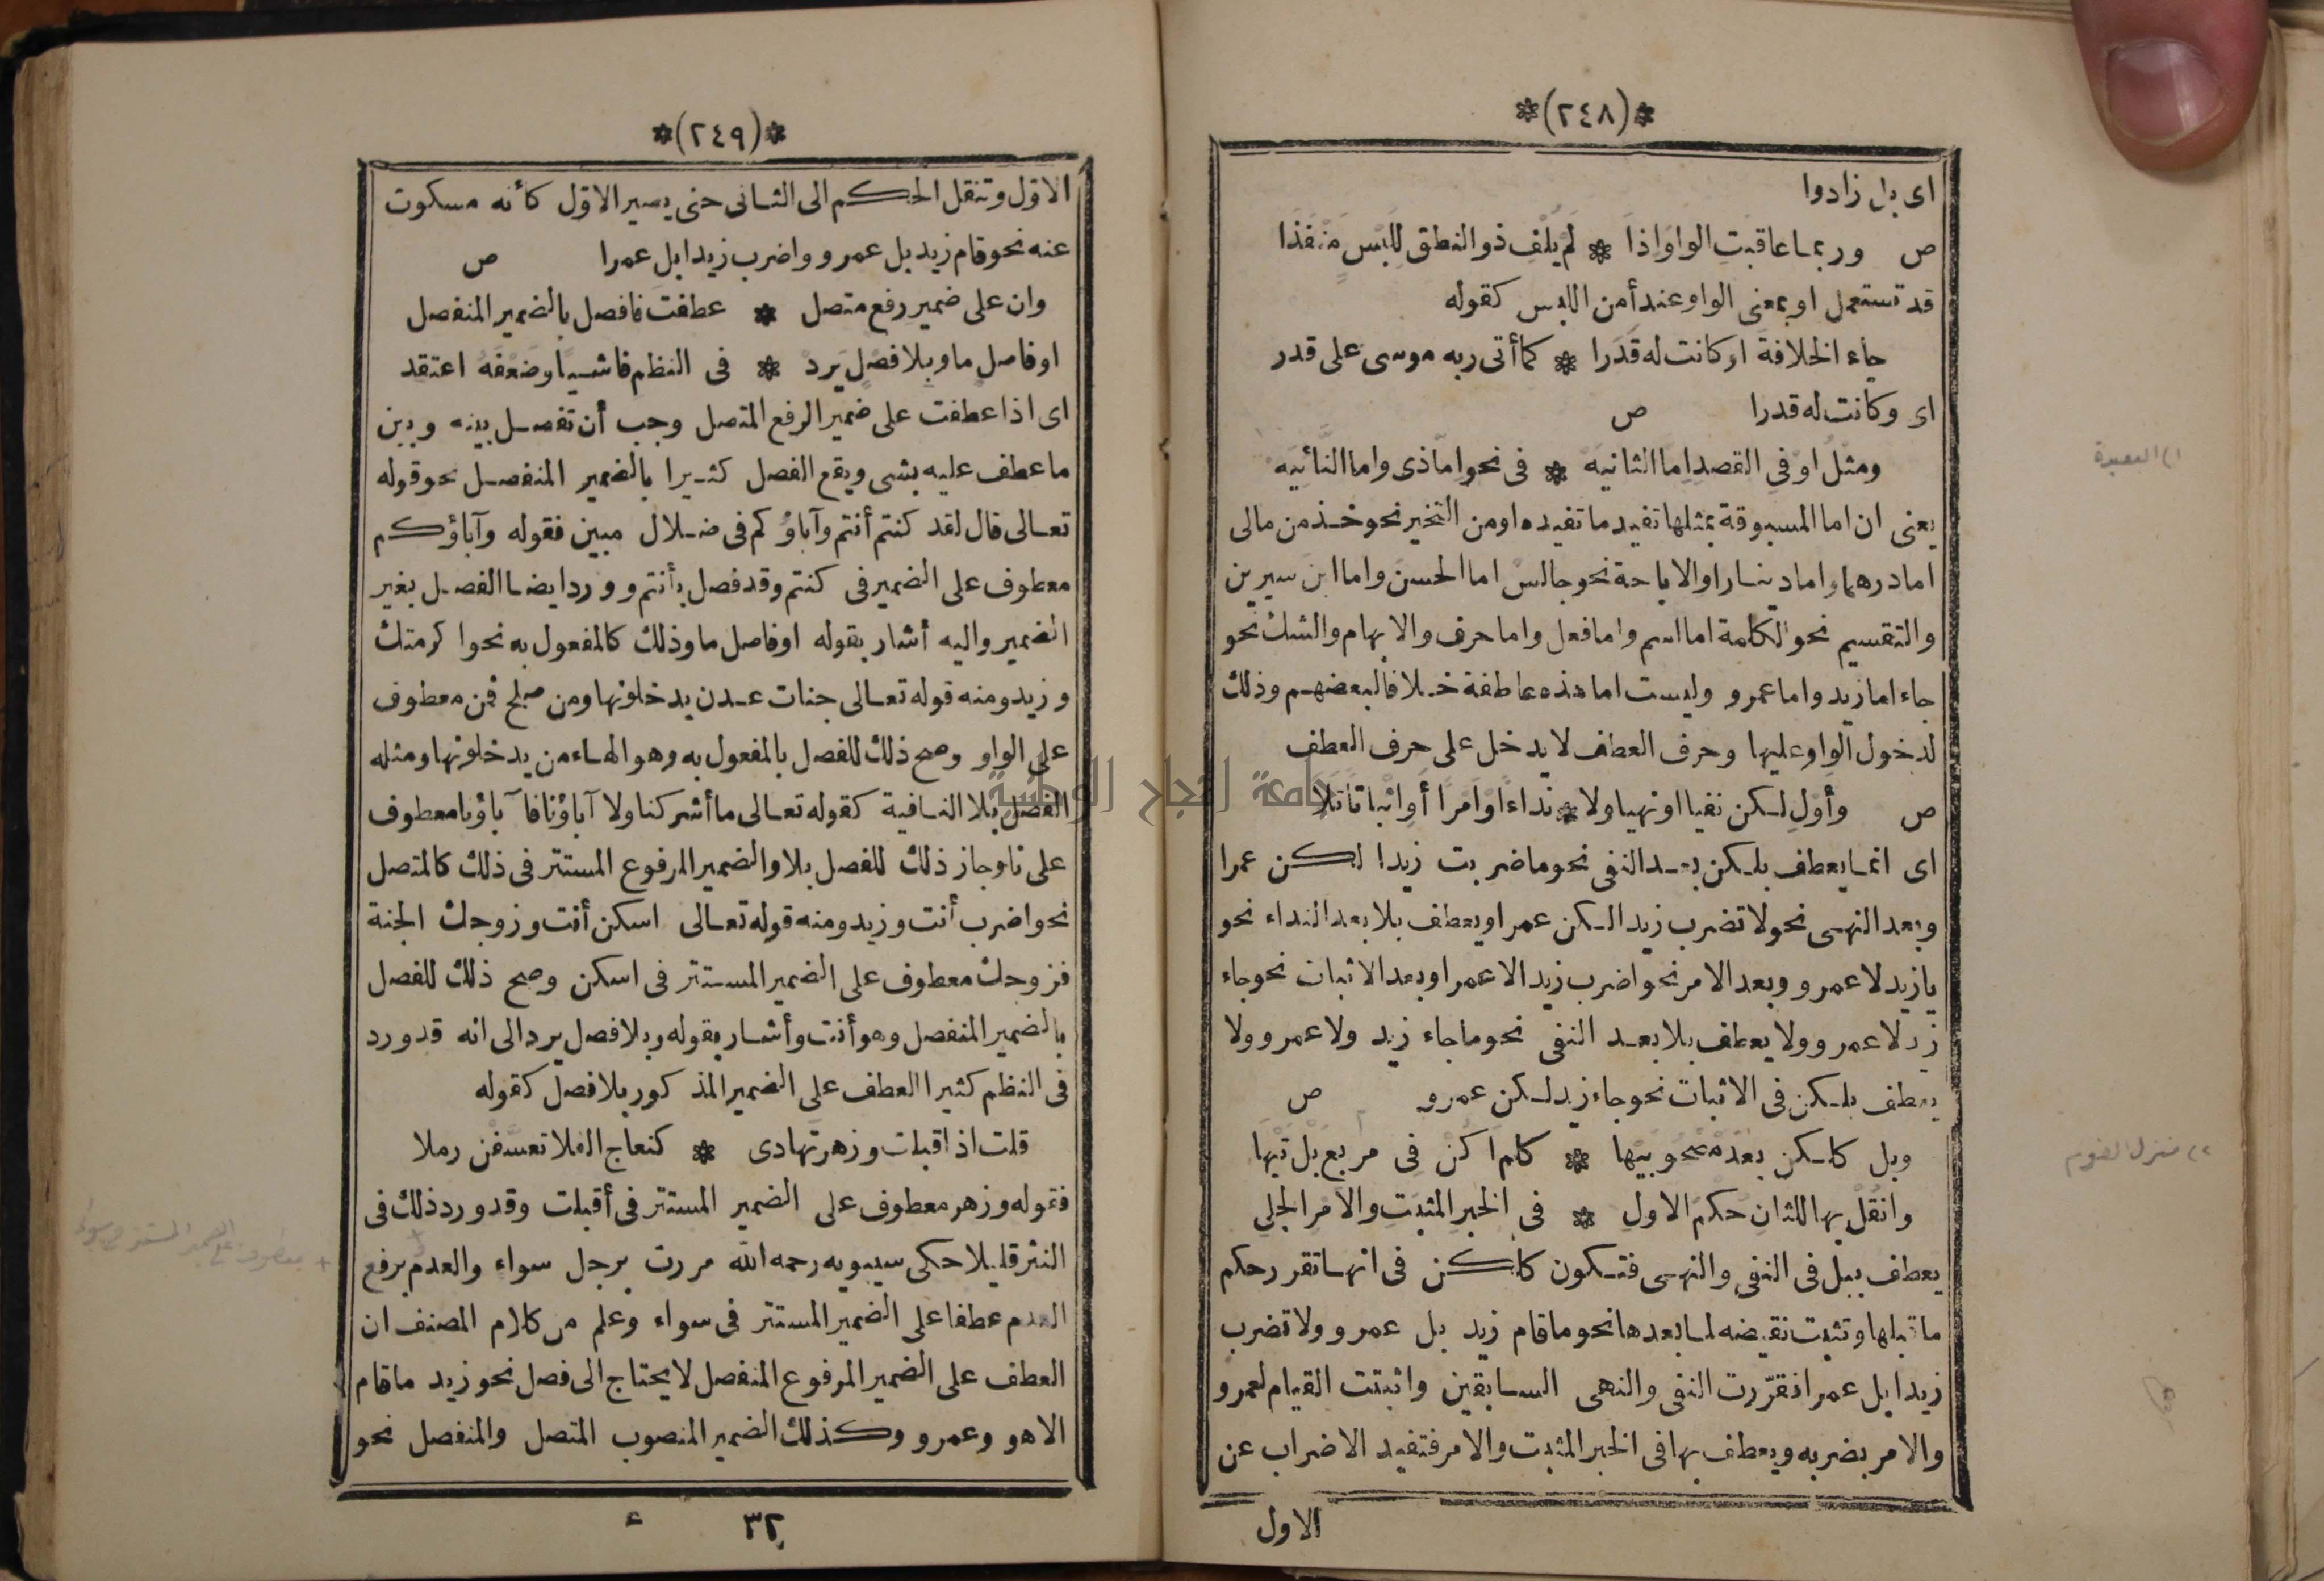 *(٢٤٨)*
اى بل زادوا
ص وربما عاقبت الواو اذا * لم يلف ذو النطق للبس منفذا
قد تستعمل او بمعنى الواو عند أمن اللبس كقوله
جاء الخلافة او كانت له قدرا * كما أتى ربه موسى على قدر
اى وكانت له قدرا ص
ومثل او فى القصد اما الثانيه * فى نحو اما ذى واما النائيه
يعنى ان اما المسبوقة بمثلها تفيد ما تفيده او من التخيير نحو خذ من مالى
اما درهما واما دينارا والاباحة نحو جالس اما الحسن واما ابن سيرين
والتقسيم نحو الكلمة اما اسم واما فعل واما حرف والابهام والشك نحو
جاء اما زيد واما عمرو وليست اما هذه عاطفة خلافا لبعضهم وذلك
لدخول الواو عليها وحرف العطف لا يدخل على حرف العطف
ص وأول لكن نفيا او نهيا ولا * نداء او امرا أو اثباتا تلا
اى انما يعطف بلكن بعد النفى نحو ما ضربت زيدا لكن عمرا
وبعد النهى نحو لا تضرب زيدا لكن عمرا ويعطف بلا بعد النداء نحو
يا زيد لا عمرو وبعد الامر نحو اضرب زيدا لا عمرا وبعد الاثبات نحو جاء
زيد لا عمرو ولا يعطف بلا بعد النفى نحو ما جاء زيد ولا عمرو ولا
يعطف بلكن فى الاثبات نحو جاء زيد لكن عمرو ص
وبل كلكن بعد مصحوبيها * كلم اكن فى مربع بل تيها
وانقل بها للثان حكم الاول * فى الخبر المثبت والامر الجلى
يعطف ببل فى النفى والنهى فتكون كلكن فى انها تقرر حكم
ما قبلها وتثبت نقيضه لما بعدها نحو ما قام زيد بل عمرو ولا تضرب
زيدا بل عمرا فقررت النفى والنهى السابقين واثبتت القيام لعمرو
والامر بضربه ويعطف بها فى الخبر المثبت والامر فتفيد الاضراب عن
الاول
(١ البعيدة
(٢ منزل القوم
*(٢٤٩)*
الاول وتنقل الحكم الى الثانى حتى يصير الاول كأنه مسكوت
عنه نحو قام زيد بل عمرو واضرب زيدا بل عمرا ص
وان على ضمير رفع متصل * عطفت فافصل بالضمير المنفصل
او فاصل ما وبلا فصل يرد * فى النظم فاشيا وضعفه اعتقد
اى اذا عطفت على ضمير الرفع المتصل وجب أن تفصل بينه وبين
ما عطف عليه بشى ويقع الفصل كثيرا بالضمير المنفصل نحو قوله
تعالى قال لقد كنتم أنتم وآباؤكم فى ضلال مبين فقوله وآباؤكم
معطوف على الضمير فى كنتم وقد فصل بأنتم وورد ايضا الفصل بغير
الضمير واليه أشار بقوله او فاصل ما وذلك كالمفعول به نحو اكرمتك
وزيد ومنه قوله تعالى جنات عدن يدخلونها ومن صلح فمن معطوف
على الواو وصح ذلك للفصل بالمفعول به وهو الهاء من يدخلونها ومثله
الفصل بلا النافية كقوله تعالى ما أشركنا ولا آباؤنا فآباؤنا معطوف
على نا وجاز ذلك للفصل بلا والضمير المرفوع المستتر فى ذلك كالمتصل
نحو اضرب أنت وزيد ومنه قوله تعالى اسكن أنت وزوجك الجنة
فزوجك معطوف على الضمير المستتر فى اسكن وصح ذلك للفصل
بالضمير المنفصل وهو أنت وأشار بقوله وبلا فصل يرد الى انه قد ورد
فى النظم كثيرا العطف على الضمير المذكور بلا فصل كقوله
قلت اذ اقبلت وزهر تهادى * كنعاج الفلا تعسفن رملا
فقوله وزهر معطوف على الضمير المستتر فى أقبلت وقد ورد ذلك فى
النثر قليلا حكى سيبويه رحمه الله مررت برجل سواء والعدم برفع
العدم عطفا على الضمير المستتر فى سواء وعلم من كلام المصنف ان
العطف على الضمير المرفوع المنفصل لا يحتاج الى فصل نحو زيد ما قام
الا هو وعمرو وكذلك الضمير المنصوب المتصل والمنفصل نحو
٣٢ ع
+ معطوف على الضمير المستتر فى سواء
جامعة النجاح الوطنية